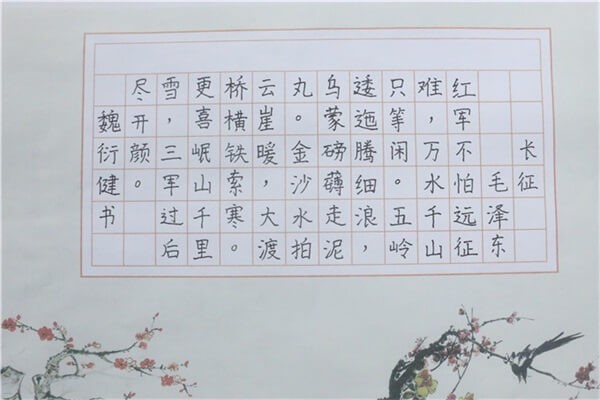 长征
毛泽东
红军不怕远征
难，万水千山
只等闲。五岭
逶迤腾细浪，
乌蒙磅礴走泥
丸。金沙水拍
云崖暖，大渡
桥横铁索寒。
更喜岷山千里
雪，三军过后
尽开颜。
魏衍健书